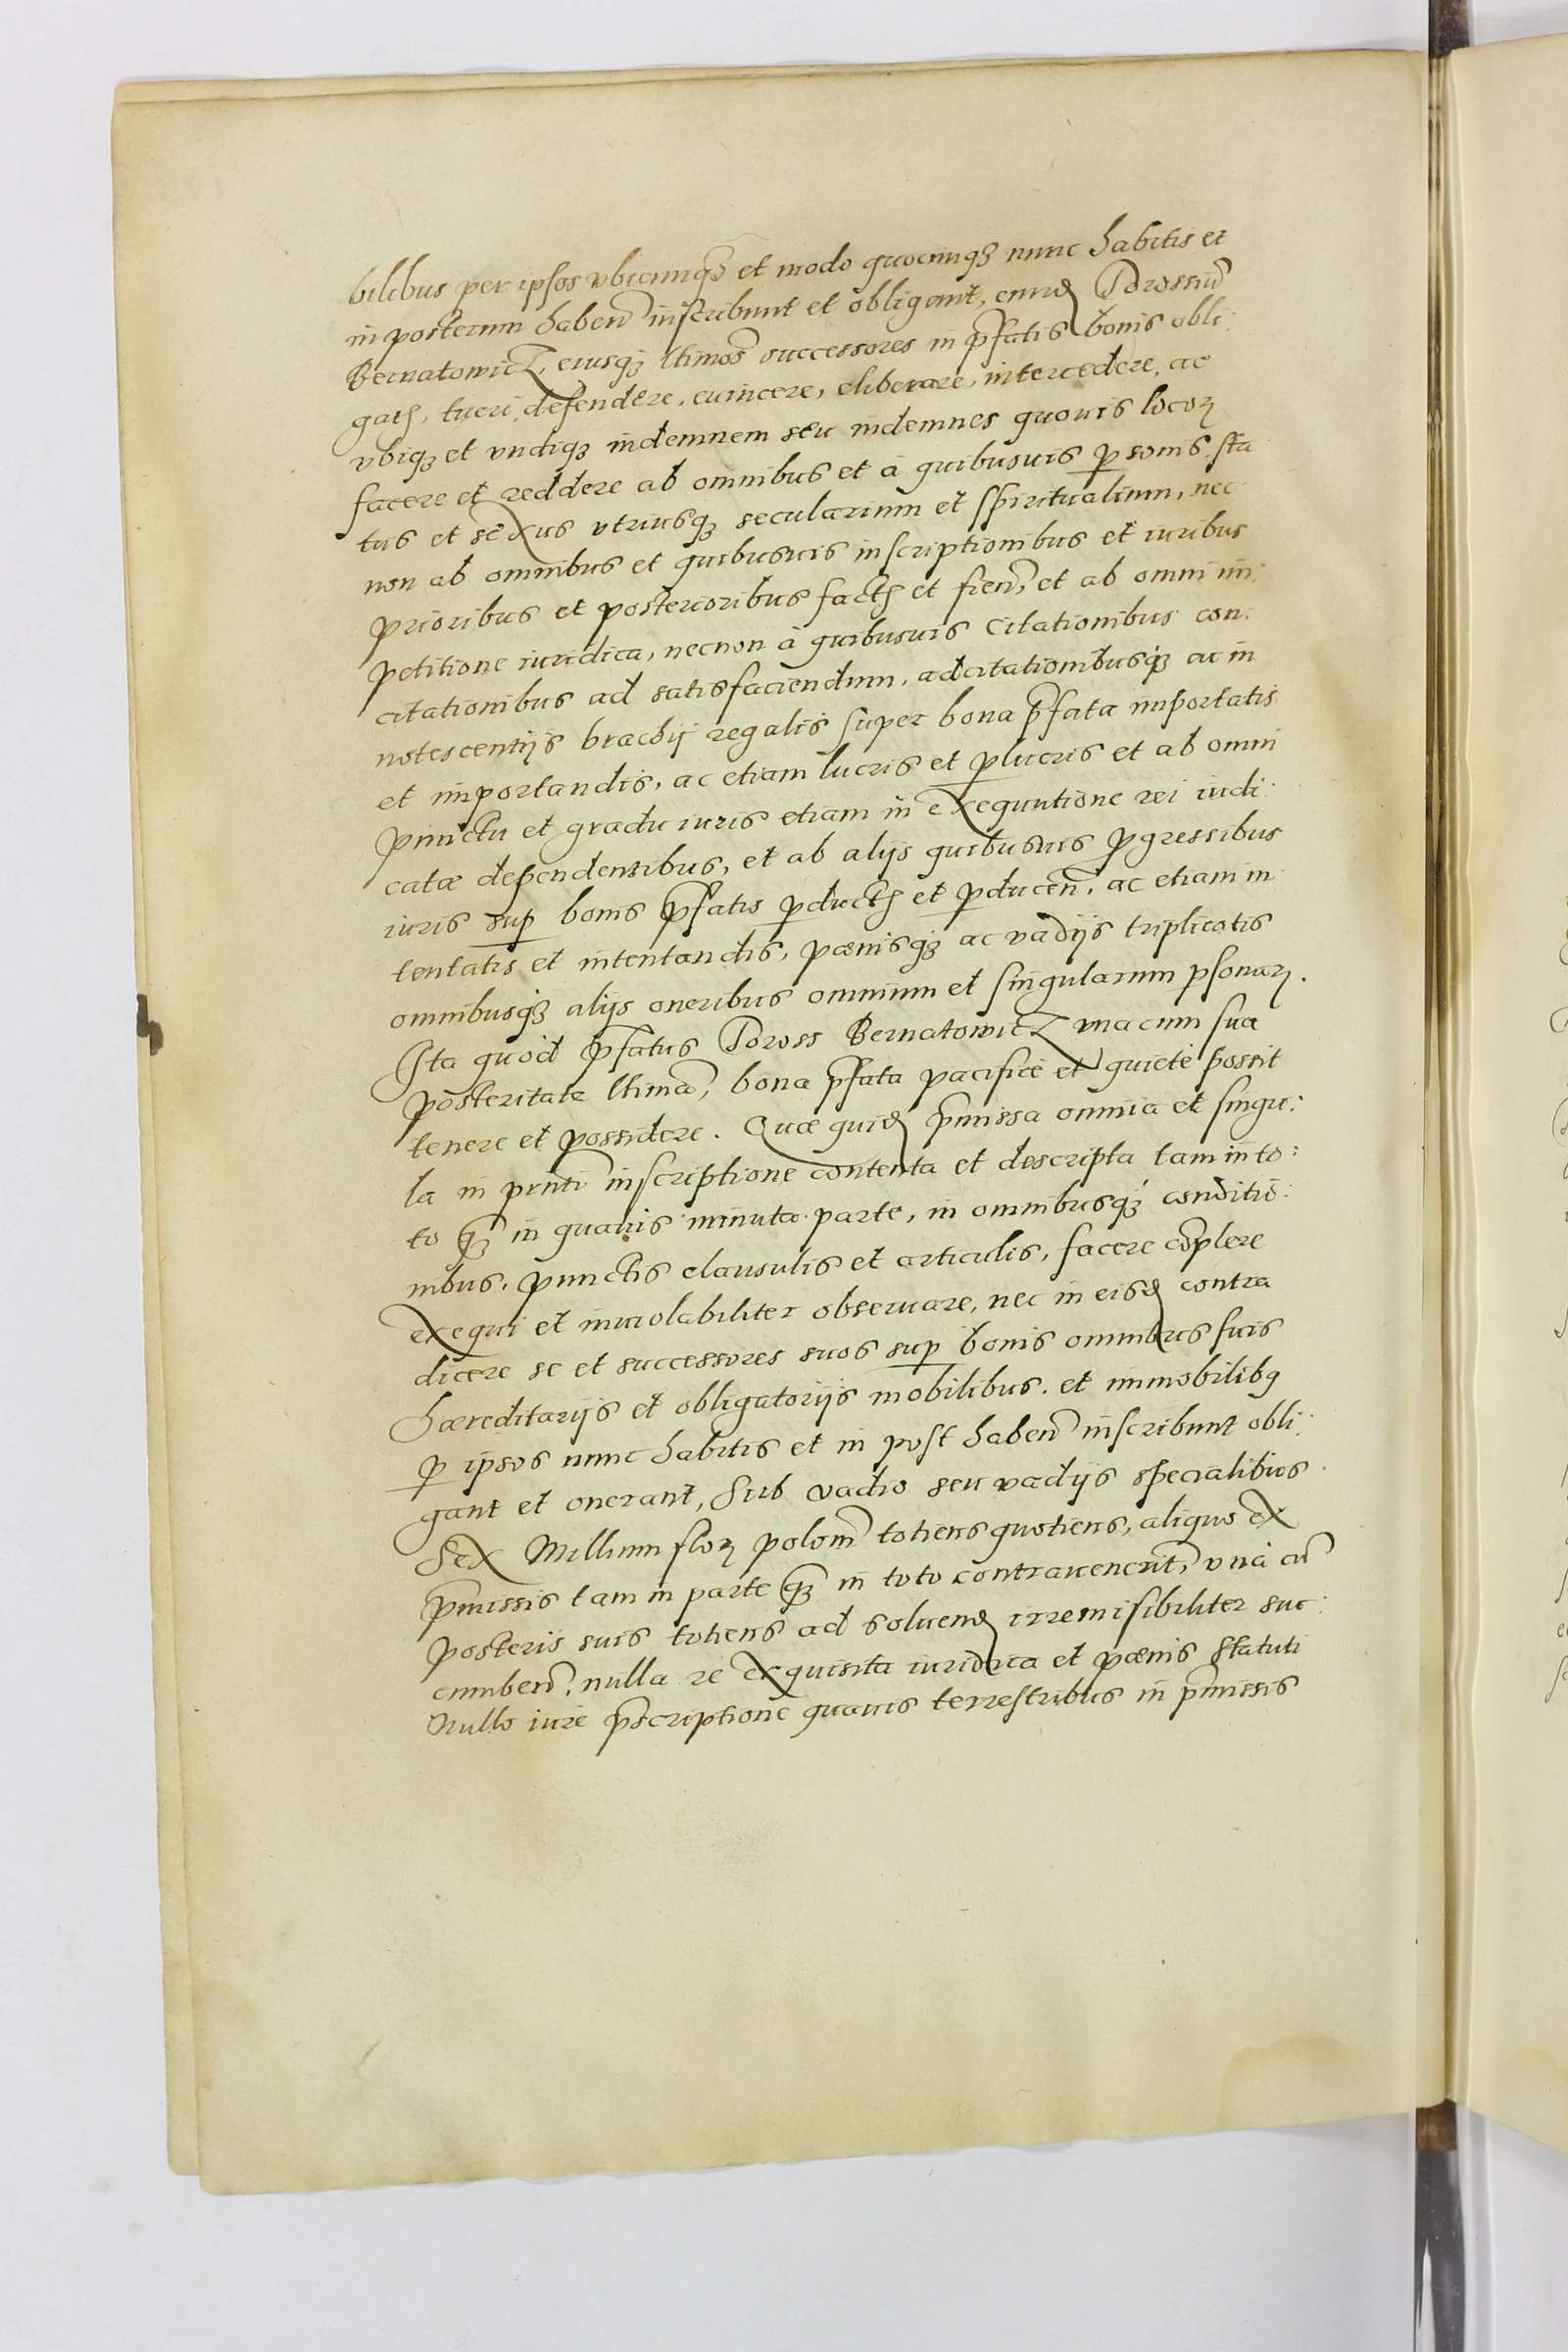 bilibus per ipsos vbicunq3 et modo quocunq3 nunc habitis et
in posterum haben̄ inscribunt et obligant, eund Dorossiū
Bernatowicz, eiusq3 l̄timos successores in p̄fatis bonis obli:
gatȝ, tueri, defendere, euincere, eliberare, intercedere, ac
vbiq3 et vndiq3 indemnem seu indemnes quouis locoꝝ
facere et reddere ab omnibus et à quibusuis ꝑsonis. sta
tus et sexus vtriusq3 secularium et spiritualium, nec
non ab omnibus et quibusuis inscriptionibus et iuribus
prioribus et posterioribus factȝ et fien̄, et ab omni im:
petitione iuridica, necnon à quibusuis Citationibus con:
citationibus ad satisfaciendum, adcitationibusq3 ac in
notescentijs brachij regalis super bona p̄fata importatis
et importandis, ac etiam lucris et ꝑlucris et ab omni
punctu et gradu iuris etiam in exequutione rei iudi:
catæ dependentibus, et ab alijs quibusuis ꝓgressibus
iuris suꝑ bonis p̄fatis ꝑductȝ et ꝑducen̄, ac etiam in
tentatis et intentandis, pœnisq3 ac vadijs triplicatis
omnibusq3 alijs oneribus omnium et singularum ꝑsonaꝝ.
Ita quòd p̄fatus Doross Bernatowicz vna cum sua
posteritate l̄tima, bona p̄fata pacificè et quietè possit
tenere et possidere. Quæ quid p̄missa omnia et singu:
la in pn̄ti inscriptione contenta et descripta tam in to:
to q̄3 in quauis minuta parte, in omnibusq3 conditio:
nibus, punctis clausulis et articulis, facere cōplere
exequi et inuiolabiliter obseruare, nec in eisd contra
dicere se et successores suos suꝑ bonis omnibus suis
hæreditarijs et obligatorijs mobilibus. et immobilibꝰ
ꝑ ipsos nunc habitis et in post haben̄ inscribunt obli:
gant et onerant, Sub vadio seu vadijs specialibus
Sex Millium floꝝ polon̄ totiens quotiens, aliquo ex
p̄missis tam in parte q̄3 in toto contrauenerint, vnà cū
posteris suis totiens ad soluend irremisibiliter suc:
cumben̄. nulla re exquisita iuridica et pœnis statuti
Nullo iure p̄scriptione quauis terrestribus in p̄missis